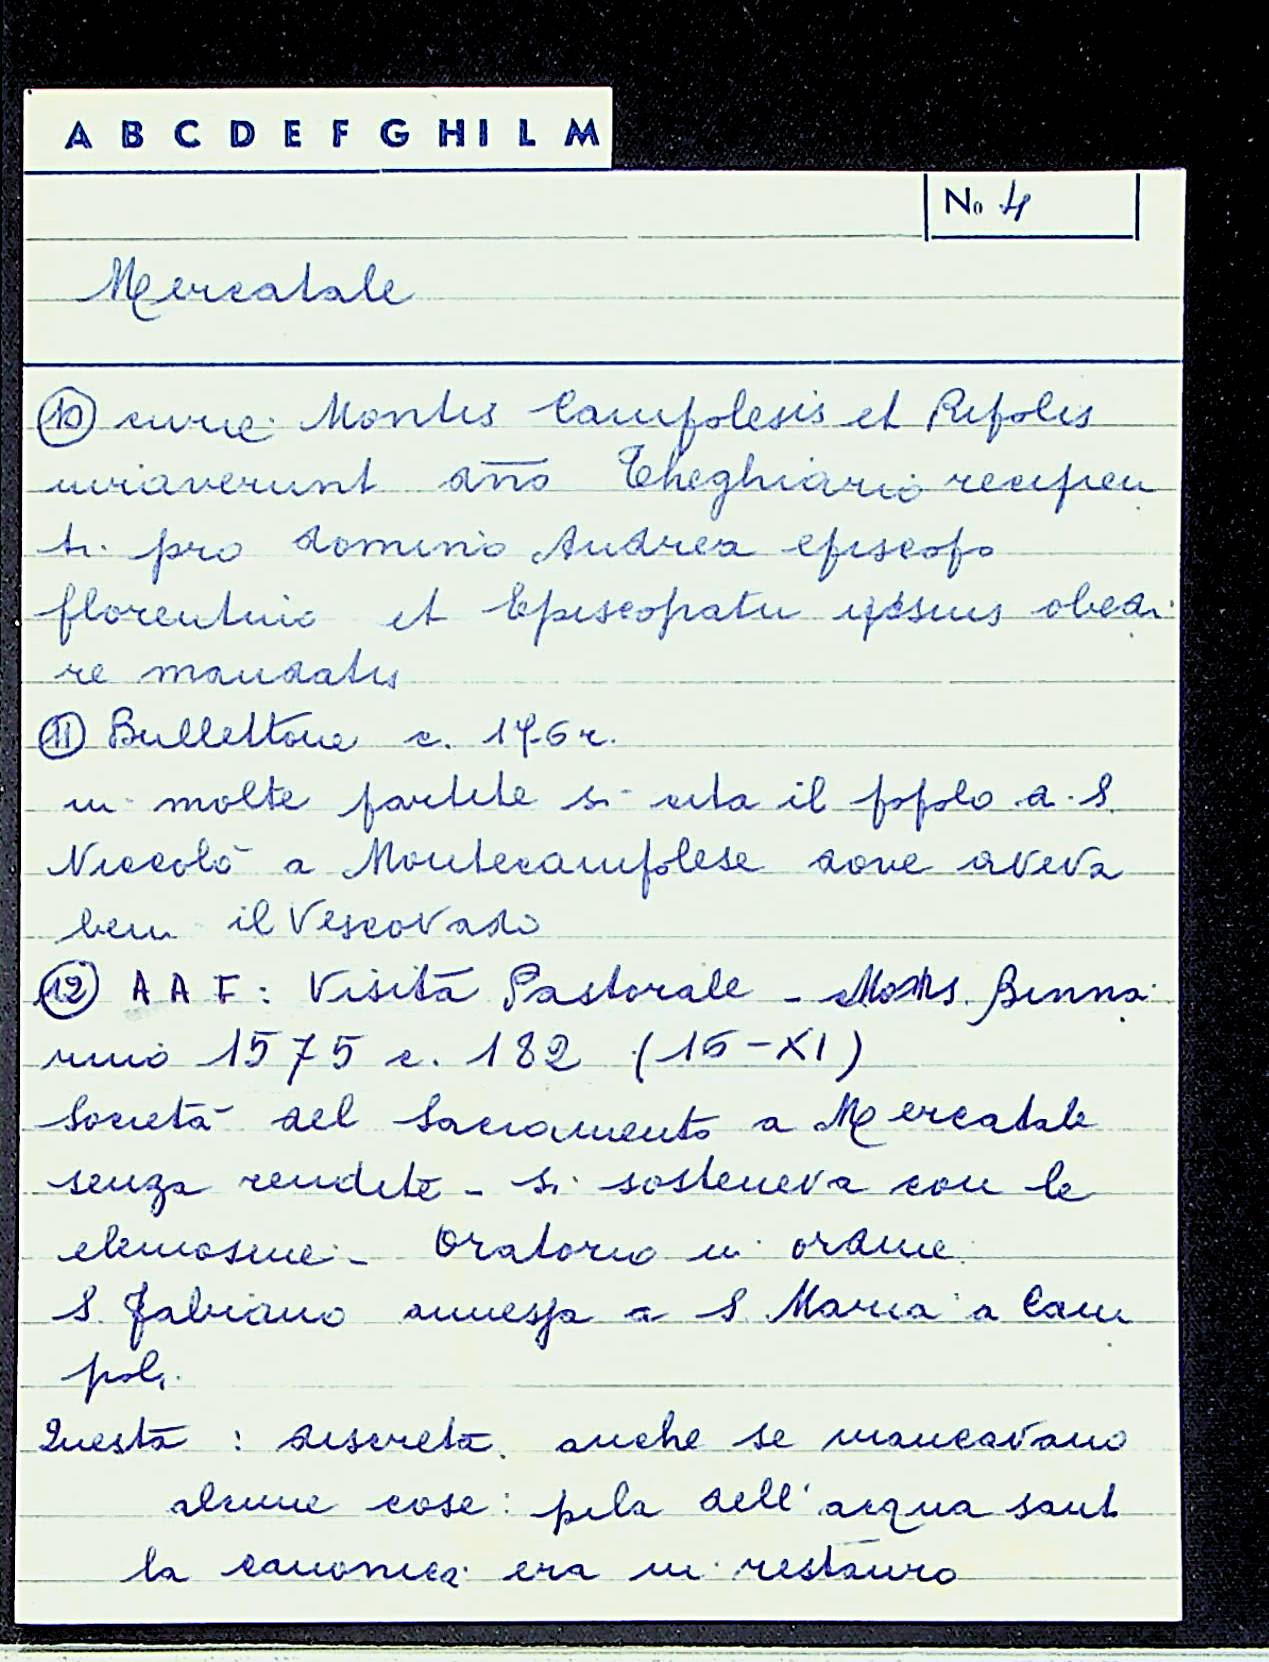 A B C D E F G H I L M
No 4
Mercatale
10 curie Montis Campolesis et Ripolis
iuraverunt dño Theghiario recipien
ti pro domino Andrea episcopo
florentino et Episcopatu ipsius obedi
re mandatis
11 Bullettone c. 176 r.
in molte partite si cita il popolo a S.
Niccolò a Montecampolese dove aveva
beni il Vescovado
12 A A F: Visita Pastorale - Mons. Binna
rino 1575 c. 182 (16-XI)
Società del Sacramento a Mercatale
senza rendite - si sosteneva con le
elemosine - Oratorio in ordine.
S. Fabiano annessa a S. Maria a Cam
poli.
Questa : discreta. anche se mancavano
alcune cose: pila dell'acqua sant.
la canonica era in restauro